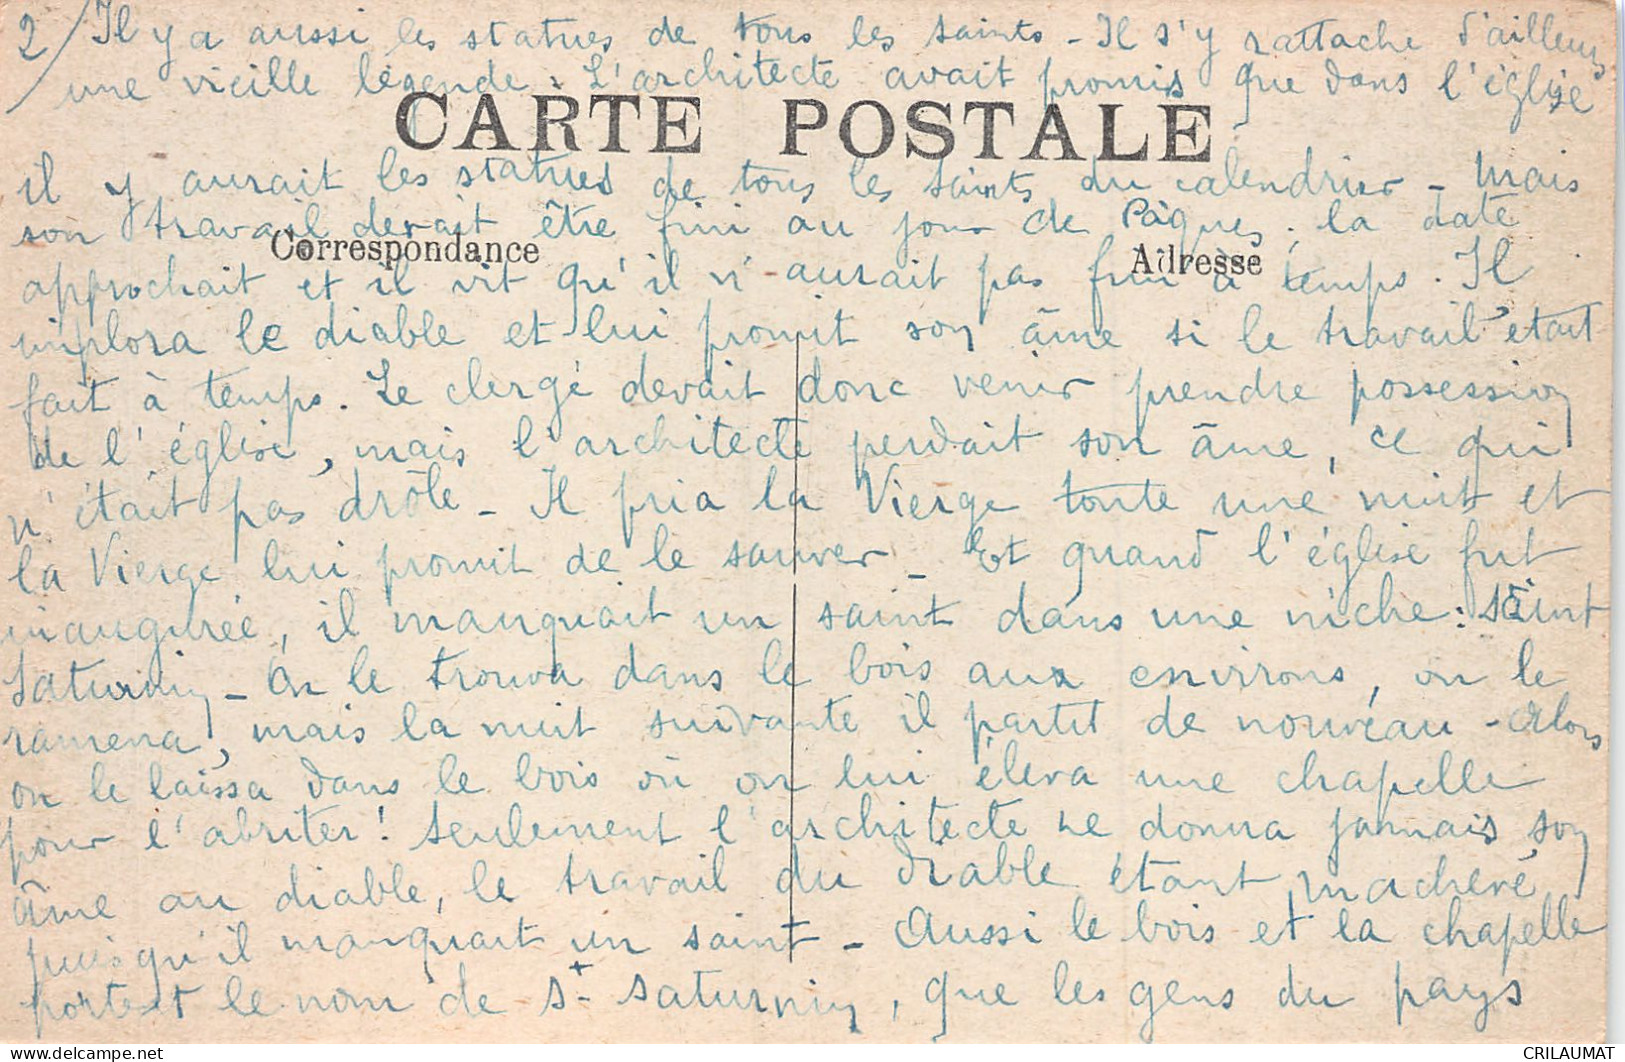 2/ Il y a aussi les statues de tous les saints - Il s'y rattache d'ailleurs
une vieille légende : L'architecte avait promis que dans l'église
CARTE POSTALE
il y aurait les statues de tous les saints du calendrier - Mais
son travail devait être fini au jour de Pâques ; la date
Correspondance
Adresse
approchait et il vit qu'il n'aurait pas fini à temps. Il
implora le diable et lui promit son âme si le travail était
fait à temps. Le clergé devait donc venir prendre possession
de l'église, mais l'architecte perdait son âme, ce qui
n'était pas drôle - Il pria la Vierge toute une nuit et
la Vierge lui promit de le sauver - Et quand l'église fut
inaugurée, il manquait un saint dans une niche : saint
Saturnin - On le trouva dans le bois aux environs, on le
ramena, mais la nuit suivante il partit de nouveau - Alors
on le laissa dans le bois où on lui éleva une chapelle
pour l'abriter ! Seulement l'architecte ne donna jamais son
âme au diable, le travail du diable étant inachevé
puisqu'il manquait un saint - Aussi le bois et la chapelle
portent le nom de St Saturnin, que les gens du pays
CRILAUMAT